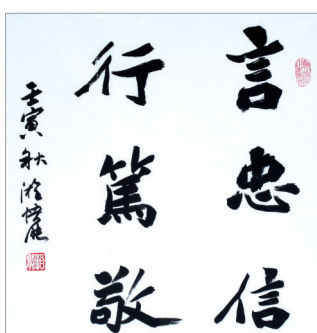 言忠信
行篤敬
壬寅秋